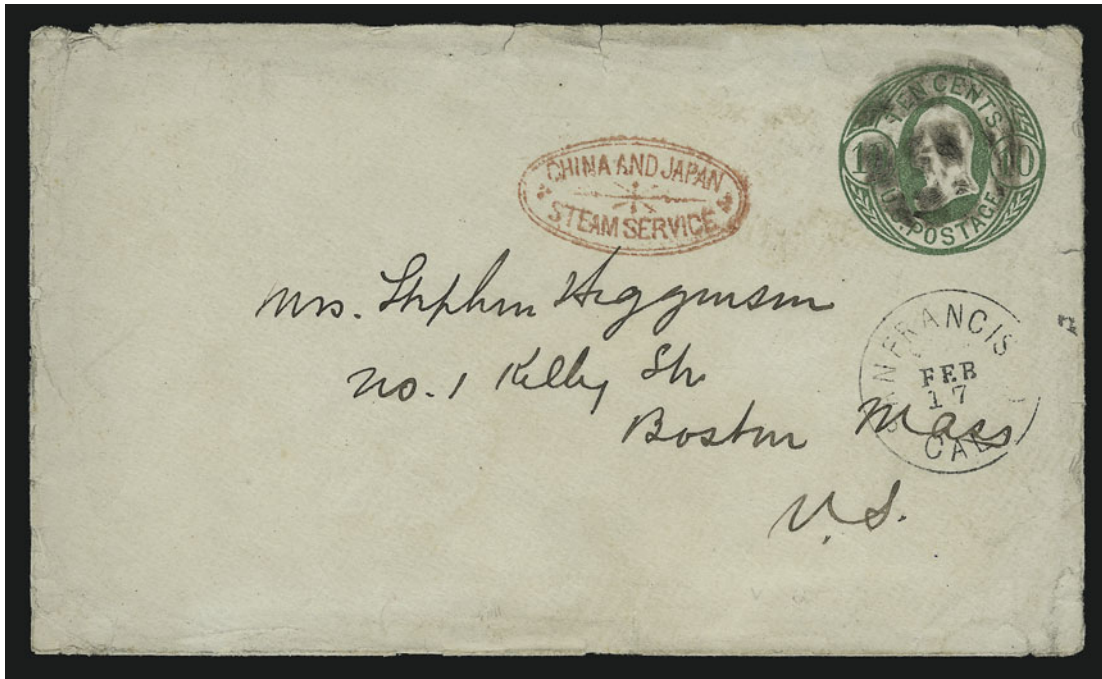 TEN CENTS
10 10
U.S. POSTAGE
CHINA AND JAPAN
STEAM SERVICE
Mrs. Stephen Higginson
No. 1 Kelly Str
Boston Mass
U.S.
SAN FRANCIS
FEB
17
CAL